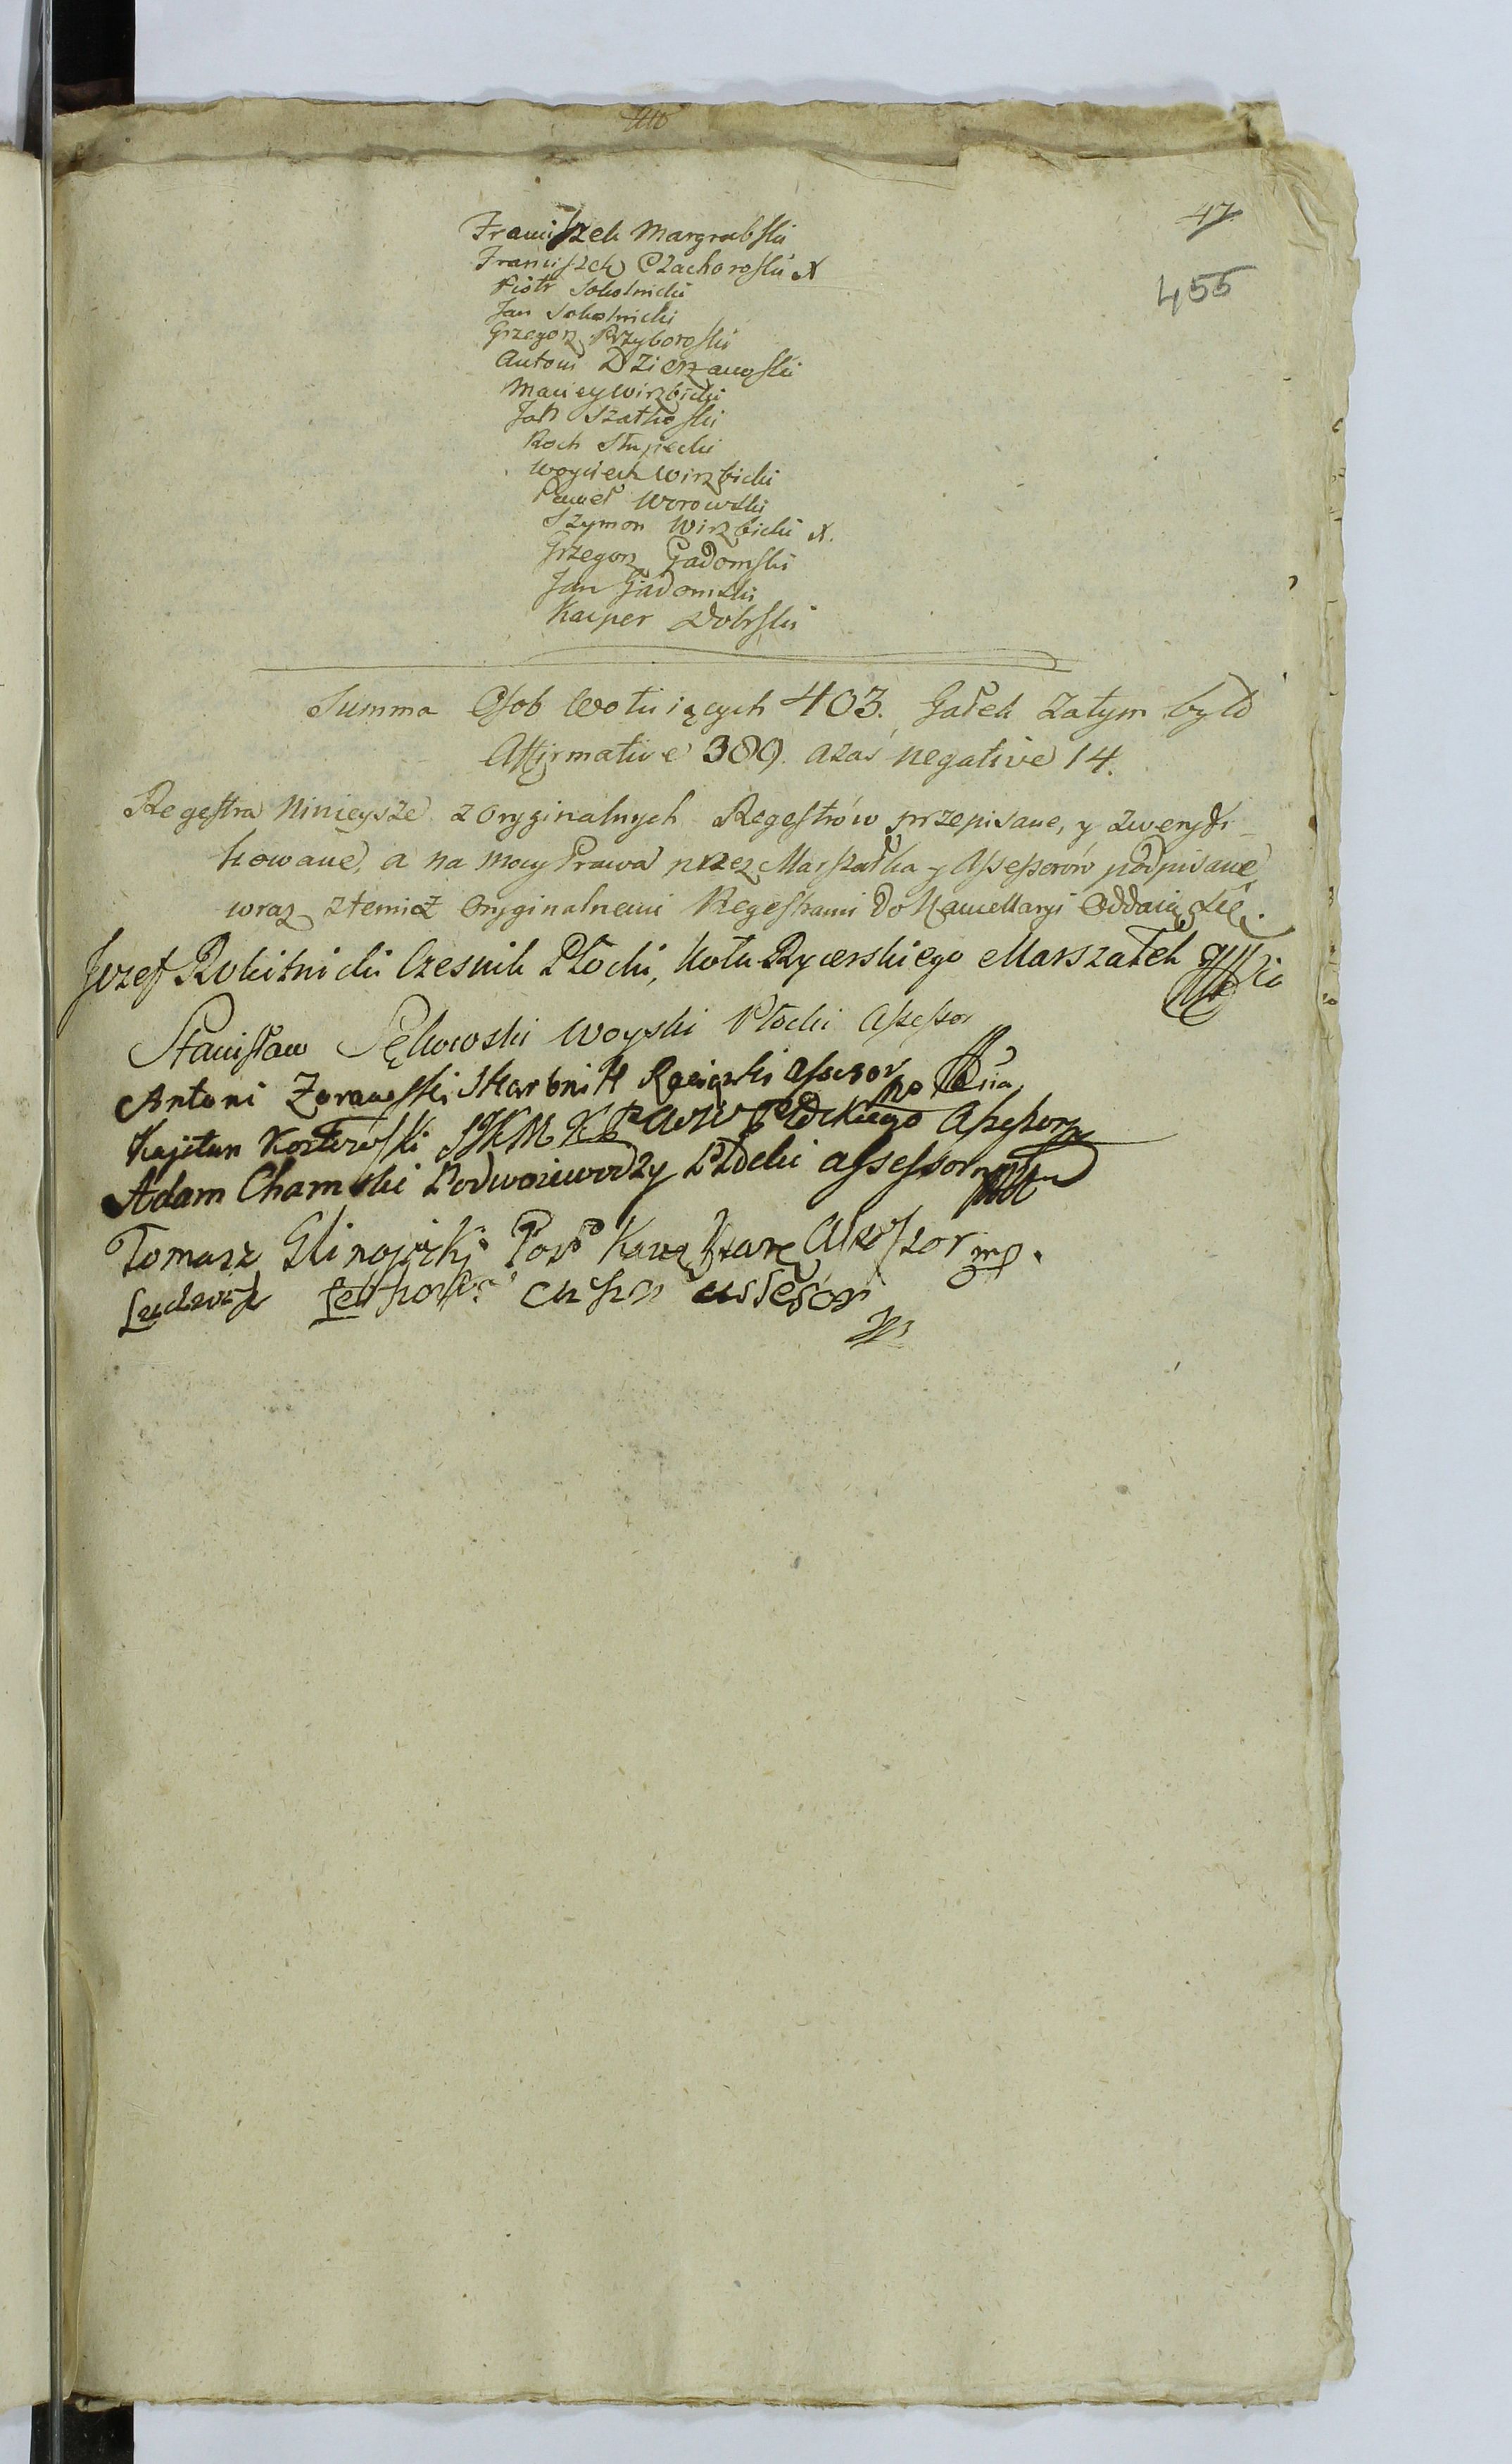 47
455
Franciszek Margrabski
Franciszek Czachoroski X
Piotr Sokolnicki
Jan Sokolnicki
Grzegorz Przyboroski
Antoni Dzierzanoski
Maciey Wirzbicki
Jan Szatkoski
Roch Słupecki
Woyciech Wirzbicki
Paweł Worowski
Szymon Wirzbicki X.
Grzegorz Gadomski
Jan Gadomski
Kacper Dobrski
Summa Osob Wotuiących 403. Gałek zatym było
Affirmative 389. azaś negative 14.
Regestra Ninieysze z oryginalnych Regestrów przepisane, y zweryfi-
kowane, a na mocy Prawa przez Marszałka y Assessorów podpisane,
wraz z temiż Oryginalnemi Regestrami Do Kancellaryi Oddaią się.
Jozef Rokitnicki Czesnik Płocki, Koła Rycerskiego Marszałek
Stanisław Pękowski Woyski Płocki Assessor
Antoni Zorawski Skarbnik Raciązki Assesor
Kajetan Kozłowski JKM Płockiego Assessor
Adam Chamski Podwoiewodzy Płocki assessor
Tomasz Glinojecki Assessor mp.
Ludwik assesor